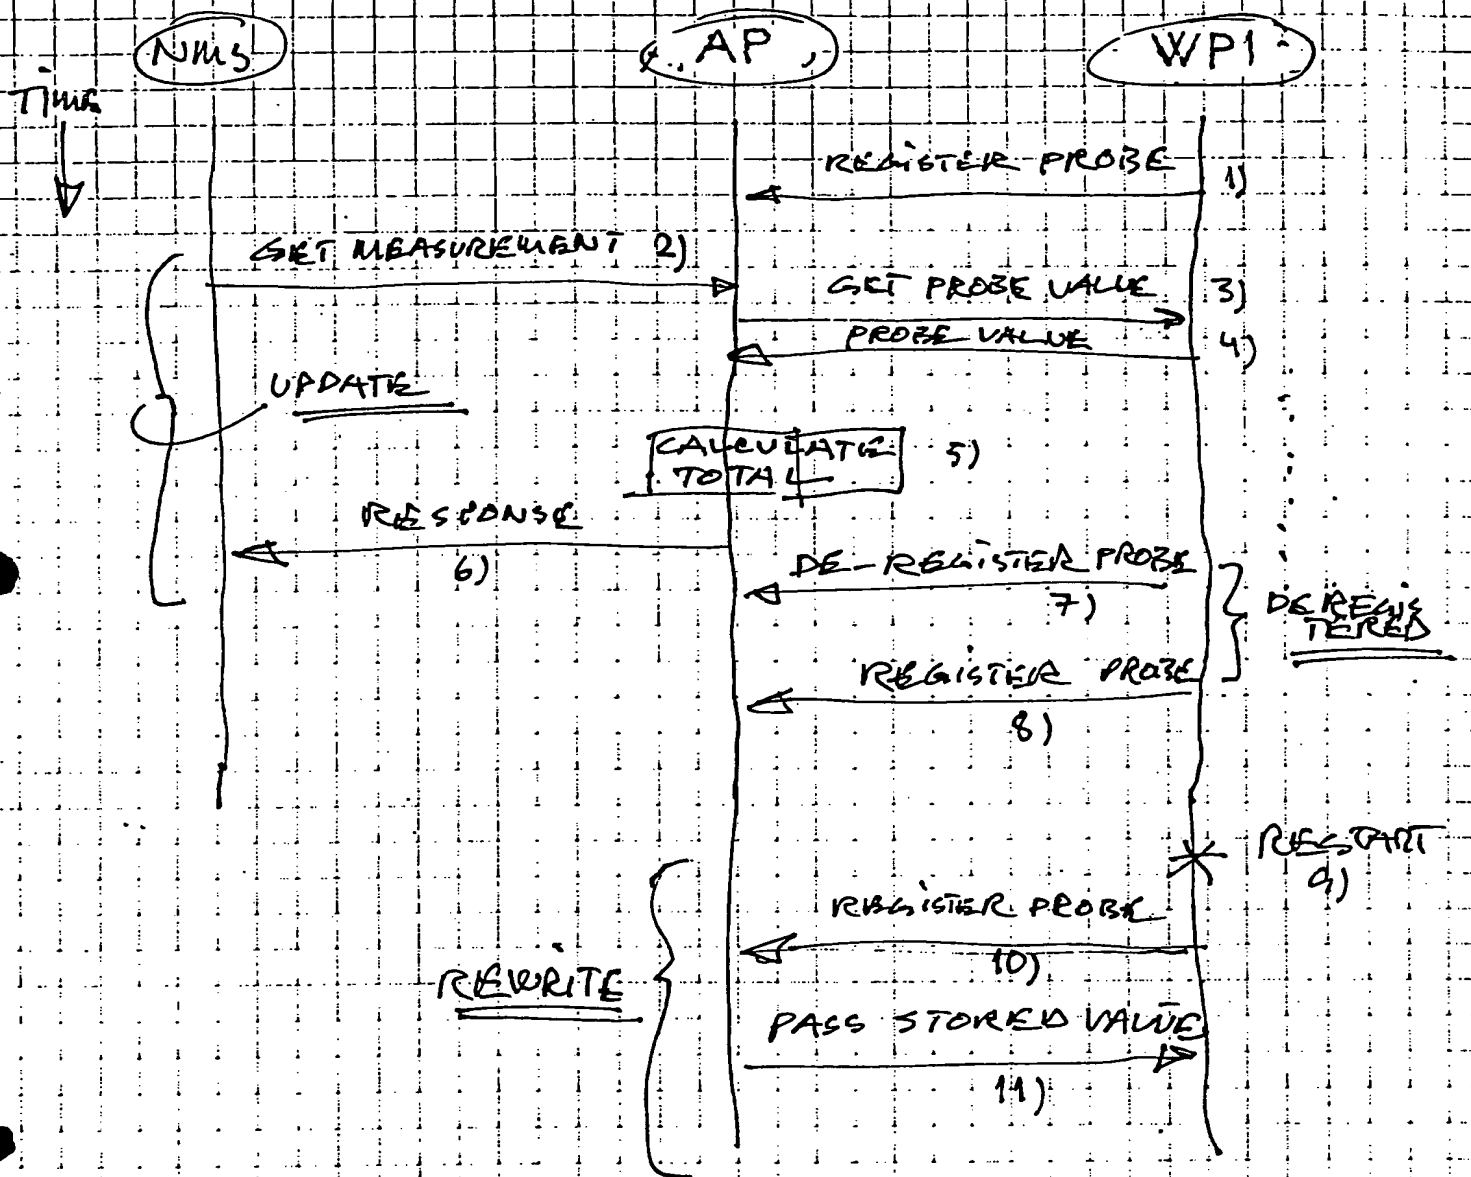 NMS
AP
WP1
Time
REGISTER PROBE 1)
GET MEASUREMENT 2)
GET PROBE VALUE 3)
PROBE VALUE 4)
UPDATE
CALCULATE 5)
TOTAL
RESPONSE
6)
DE-REGISTER PROBE
7)
DEREGIS
TERED
REGISTER PROBE
8)
RESTART
9)
REGISTER PROBE
10)
REWRITE
PASS STORED VALUE
11)